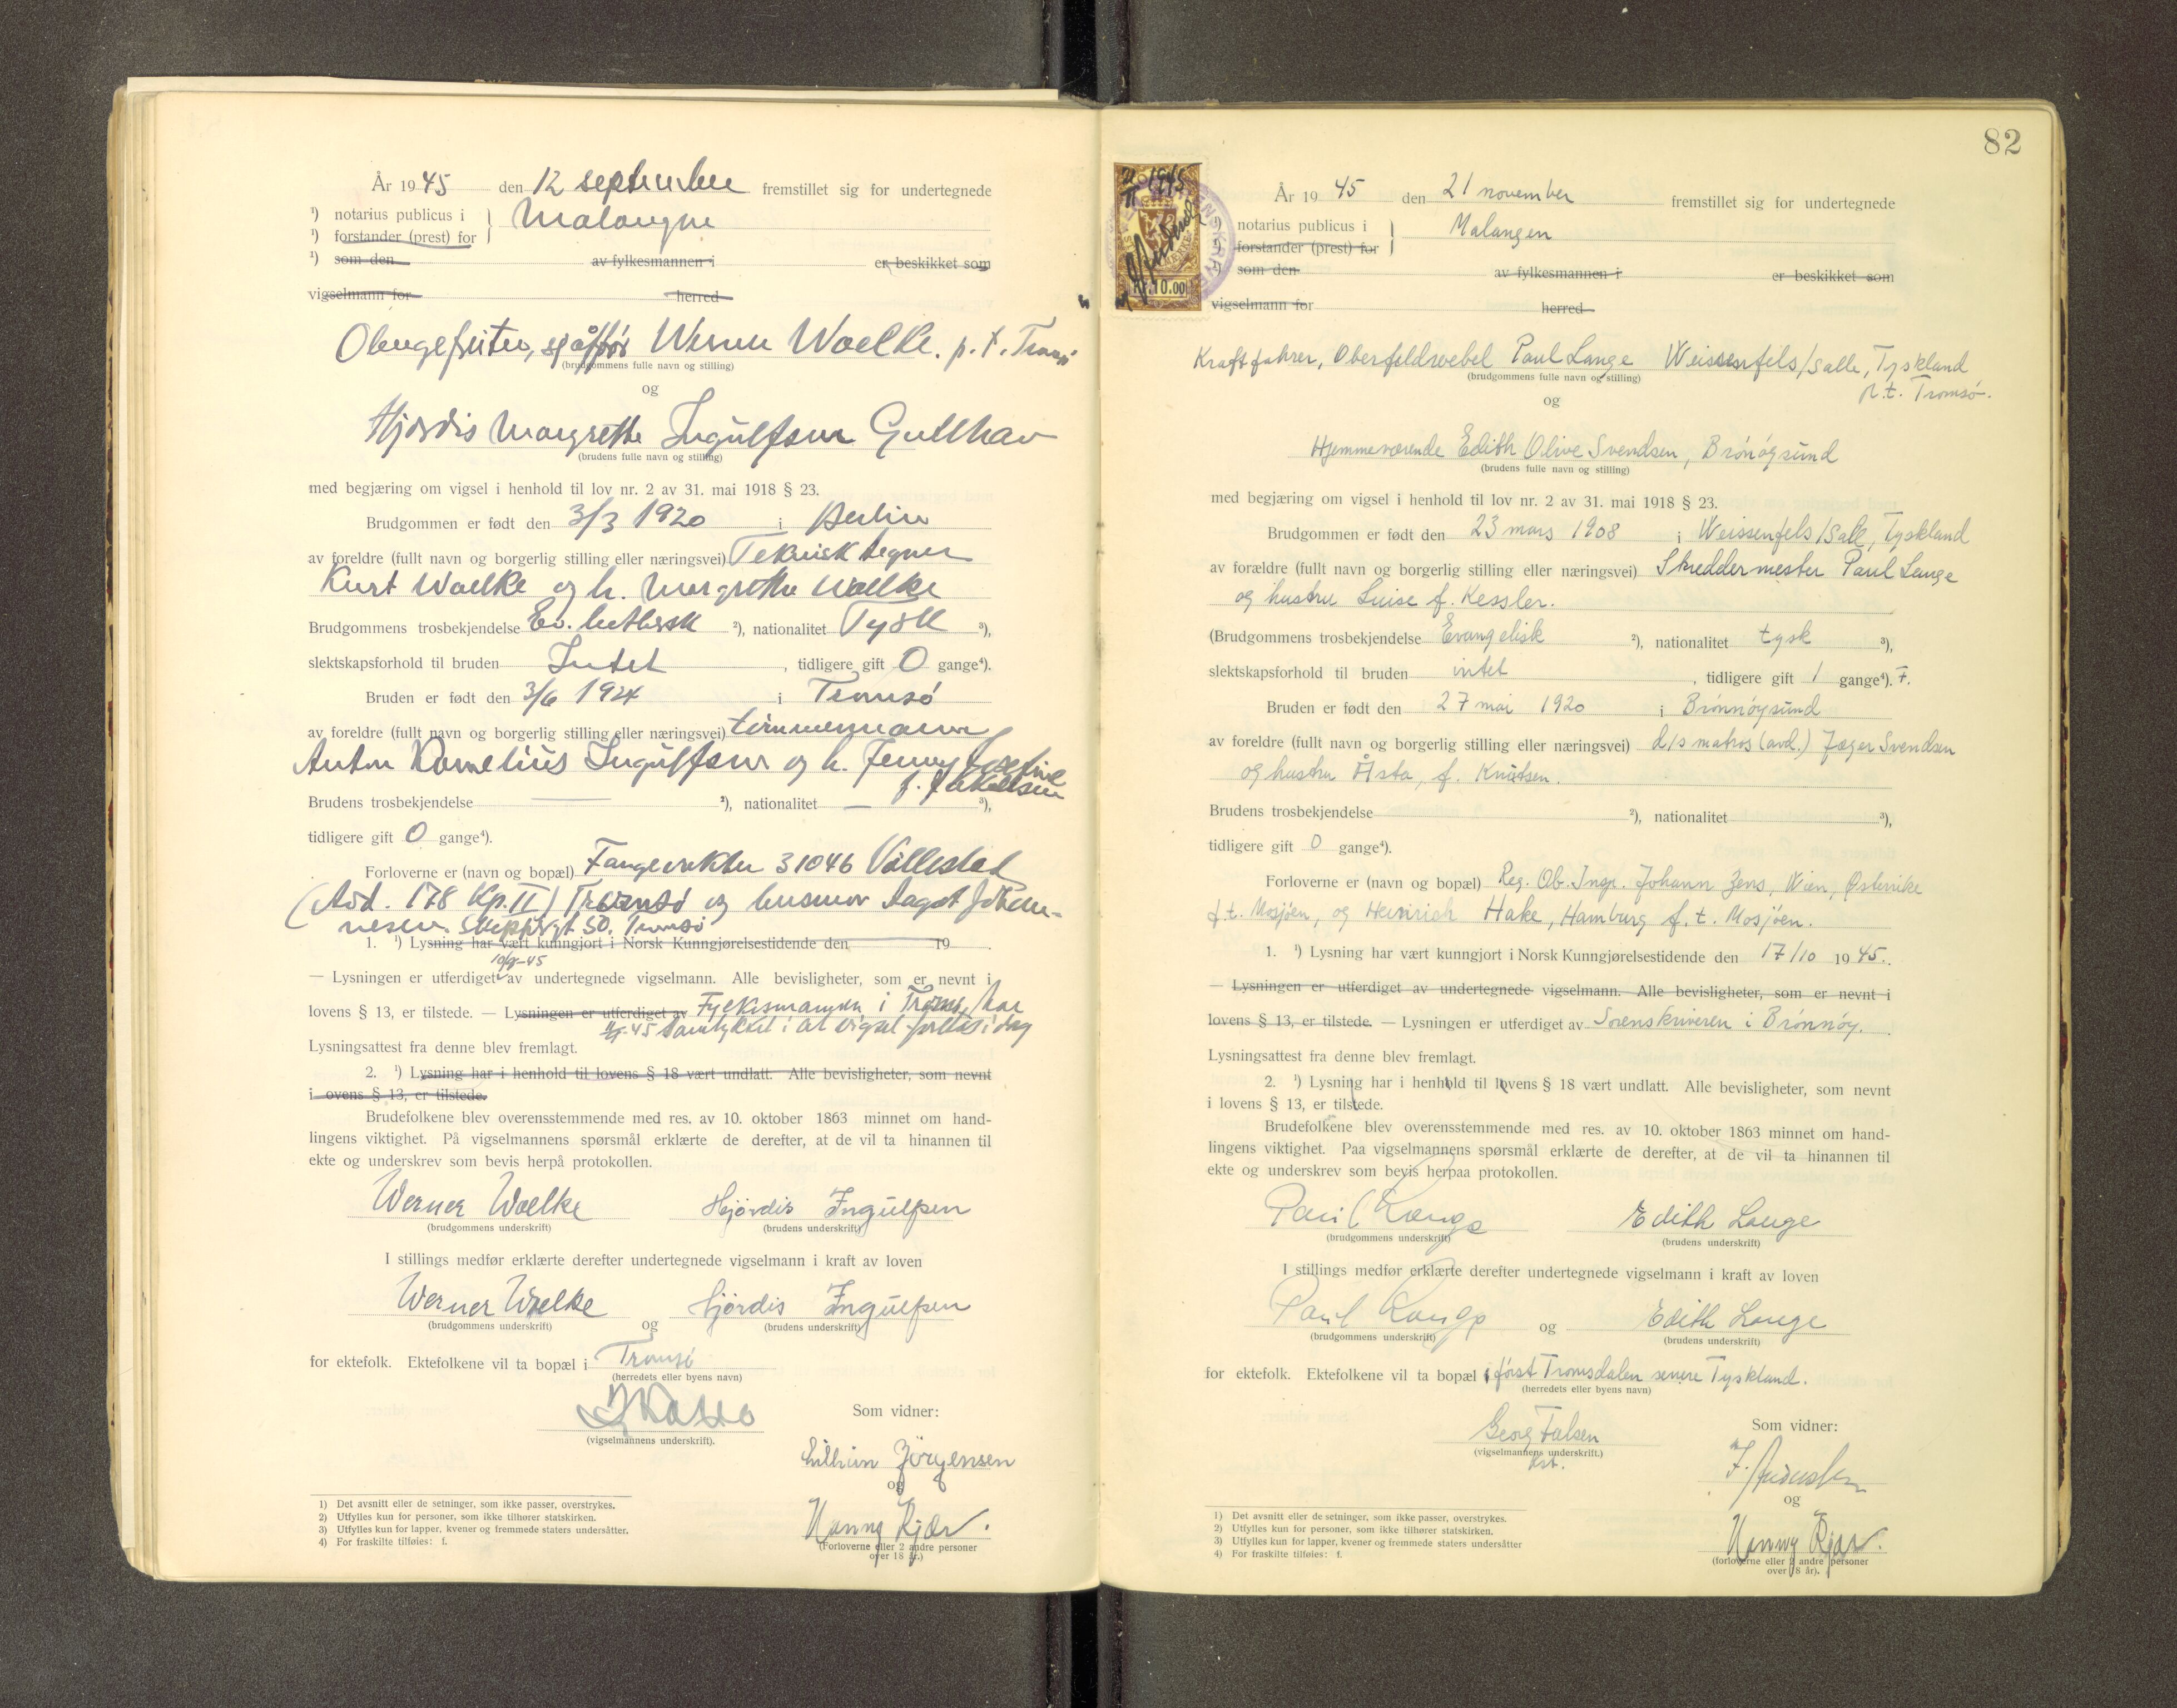 År 1945 den 12 september fremstillet sig for undertegnede
¹) notarius publicus i
Malangen
¹) forstander (prest) for
¹) som den av fylkesmannen i er beskikket som
vigselmann for herred
Obergefreiter, sjåfør Werner Woelke. p. t. Tromsø
(brudgommens fulle navn og stilling)
og
Hjørdis Margrethe Ingulfsen Gullhav
(brudens fulle navn og stilling)
med begjæring om vigsel i henhold til lov nr. 2 av 31. mai 1918 § 23.
Brudgommen er født den 3/3 1920 i Berlin
av foreldre (fullt navn og borgerlig stilling eller næringsvei) Teknisk tegner
Kurt Woelke og h. Margrethe Woelke
Brudgommens trosbekjendelse Ev. luthersk ²), nationalitet Tysk ³),
slektskapsforhold til bruden Intet, tidligere gift 0 gange⁴).
Bruden er født den 3/6 1924 i Tromsø
av foreldre (fullt navn og borgerlig stilling eller næringsvei) tømmermann
Anton Kornelius Ingulfsen og h. Jenny Josefine
f. Jakobsen
Brudens trosbekjendelse — ²), nationalitet — ³),
tidligere gift 0 gange⁴).
Forloverne er (navn og bopæl) Fangevokter 31046 Vållestad
(Avd. 178 Kp. II) Tromsø og husmor Dagot Johan-
nesen. Skippergt 50. Tromsø
1. ¹) Lysning har vært kunngjort i Norsk Kunngjørelsestidende den 19
— Lysningen er utferdiget av undertegnede vigselmann. Alle bevisligheter, som er nevnt i
lovens § 13, er tilstede. — Lysningen er utferdiget av Fylkesmannen i Troms, har
-45 samtykket i at vigsel foretas i dag
Lysningsattest fra denne blev fremlagt.
2. ¹) Lysning har i henhold til lovens § 18 vært undlatt. Alle bevisligheter, som nevnt
i ovens § 13, er tilstede.
Brudefolkene blev overensstemmende med res. av 10. oktober 1863 minnet om hand-
lingens viktighet. På vigselmannens spørsmål erklærte de derefter, at de vil ta hinannen til
ekte og underskrev som bevis herpå protokollen.
Werner Woelke Hjördis Ingulfsen
(brudgommens underskrift) (brudens underskrift)
I stillings medfør erklærte derefter undertegnede vigselmann i kraft av loven
Werner Woelke og Hjördis Ingulfsen
(brudgommens underskrift) (brudens underskrift)
for ektefolk. Ektefolkene vil ta bopæl i Tromsø
(herredets eller byens navn)
(vigselmannens underskrift).
Som vidner:
Jörgensen
og
Nanny Kjær.
(Forloverne eller 2 andre personer
over 18 år.)
1) Det avsnitt eller de setninger, som ikke passer, overstrykes.
2) Utfylles kun for personer, som ikke tilhører statskirken.
3) Utfylles kun for lapper, kvener og fremmede staters undersåtter.
4) For fraskilte tilføies: f.
82
Kr. 10.00
År 1945 den 21 november fremstillet sig for undertegnede
notarius publicus i
Malangen
forstander (prest) for
som den av fylkesmannen i er beskikket som
vigselmann for herred
Kraftfahrer, Oberfeldwebel Paul Lange Weissenfels/Salle, Tyskland
p.t. Tromsø.
(brudgommens fulle navn og stilling)
og
Hjemmeværende Edith Olive Svendsen, Brønøysund
(brudens fulle navn og stilling)
med begjæring om vigsel i henhold til lov nr. 2 av 31. mai 1918 § 23.
Brudgommen er født den 23 mars 1908 i Weissenfels/Salle, Tyskland
av forældre (fullt navn og borgerlig stilling eller næringsvei) Skreddermester Paul Lange
og hustru Luise f. Kessler.
(Brudgommens trosbekjendelse Evangelisk ²), nationalitet tysk ³),
slektskapsforhold til bruden intet, tidligere gift 1 gange⁴). F.
Bruden er født den 27 mai 1920 i Brønnøysund
av foreldre (fullt navn og borgerlig stilling eller næringsvei) d/s matros (avd.) Jæger Svendsen
og hustru Åsta, f. Knutsen.
Brudens trosbekjendelse ²), nationalitet ³),
tidligere gift 0 gange⁴).
Forloverne er (navn og bopæl) Reg. Ob. Ingr. Johann Zens, Wien, Østerrike
f.t. Mosjøen, og Heinrich Hake, Hamburg f.t. Mosjøen.
1. ¹) Lysning har vært kunngjort i Norsk Kunngjørelsestidende den 17/10 1945.
— Lysningen er utferdiget av undertegnede vigselmann. Alle bevisligheter, som er nevnt i
lovens § 13, er tilstede. — Lysningen er utferdiget av Sorenskriveren i Brønnøy.
Lysningsattest fra denne blev fremlagt.
2. ¹) Lysning har i henhold til lovens § 18 vært undlatt. Alle bevisligheter, som nevnt
i lovens § 13, er tilstede.
Brudefolkene blev overensstemmende med res. av 10. oktober 1863 minnet om hand-
lingens viktighet. Paa vigselmannens spørsmål erklærte de derefter, at de vil ta hinannen til
ekte og underskrev som bevis herpaa protokollen.
Paul Lange Edith Lange
(brudgommens underskrift) (brudens underskrift)
I stillings medfør erklærte derefter undertegnede vigselmann i kraft av loven
Paul Lange og Edith Lange
(brudgommens underskrift) (brudens underskrift)
for ektefolk. Ektefolkene vil ta bopæl i først Tromsdalen senere Tyskland.
(herredets eller byens navn)
Georg Falsen
(vigselmannens underskrift.)
kst.
Som vidner:
og
Nanny Kjær.
(forloverne eller 2 andre personer
over 18 år).
1) Det avsnitt eller de setninger, som ikke passer, overstrykes.
2) Utfylles kun for personer, som ikke tilhører statskirken.
3) Utfylles kun for lapper, kvener og fremmede staters undersåtter
4) For fraskilte tilføies: f.